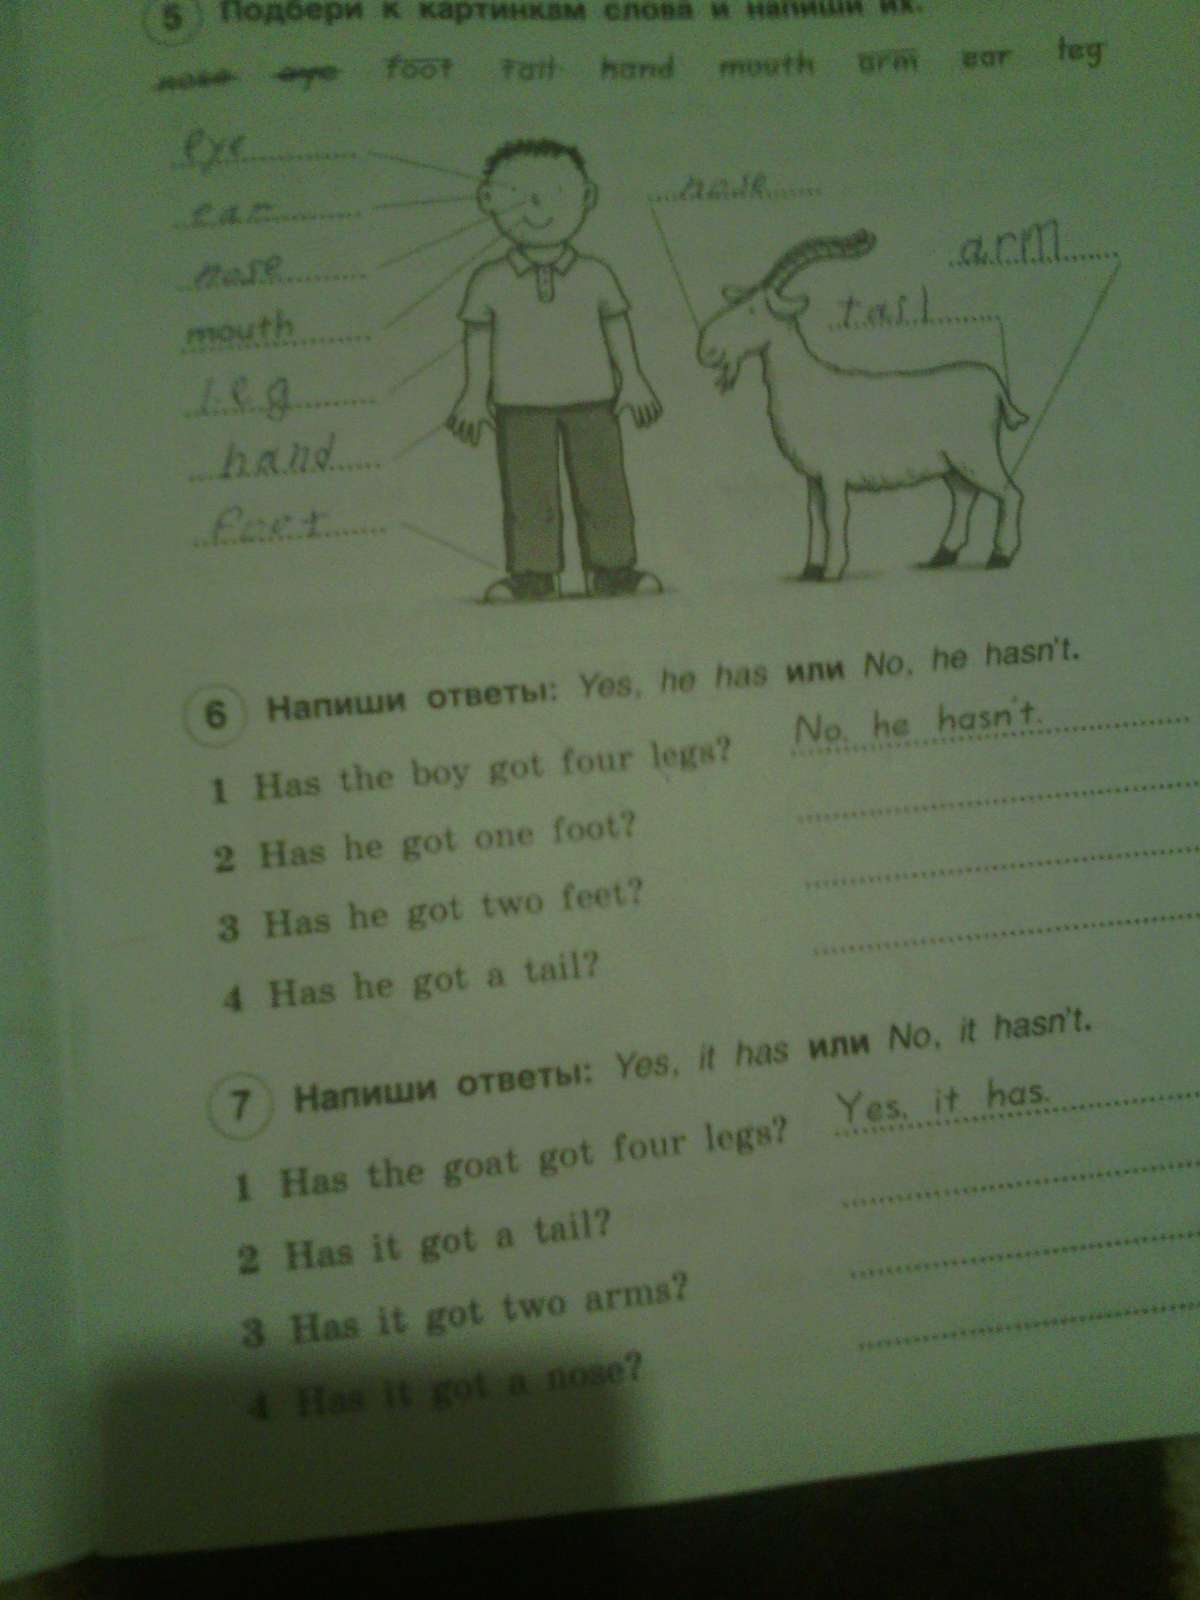 5 Подбери к картинкам слова и напиши их.
nose eye foot tail hand mouth arm ear leg
eye
ear
nose
mouth
leg
hand
foot
nose
arm
tail
6 Напиши ответы: Yes, he has или No, he hasn't.
1 Has the boy got four legs? No, he hasn't.
2 Has he got one foot?
3 Has he got two feet?
4 Has he got a tail?
7 Напиши ответы: Yes, it has или No, it hasn't.
1 Has the goat got four legs? Yes, it has.
2 Has it got a tail?
3 Has it got two arms?
4 Has it got a nose?